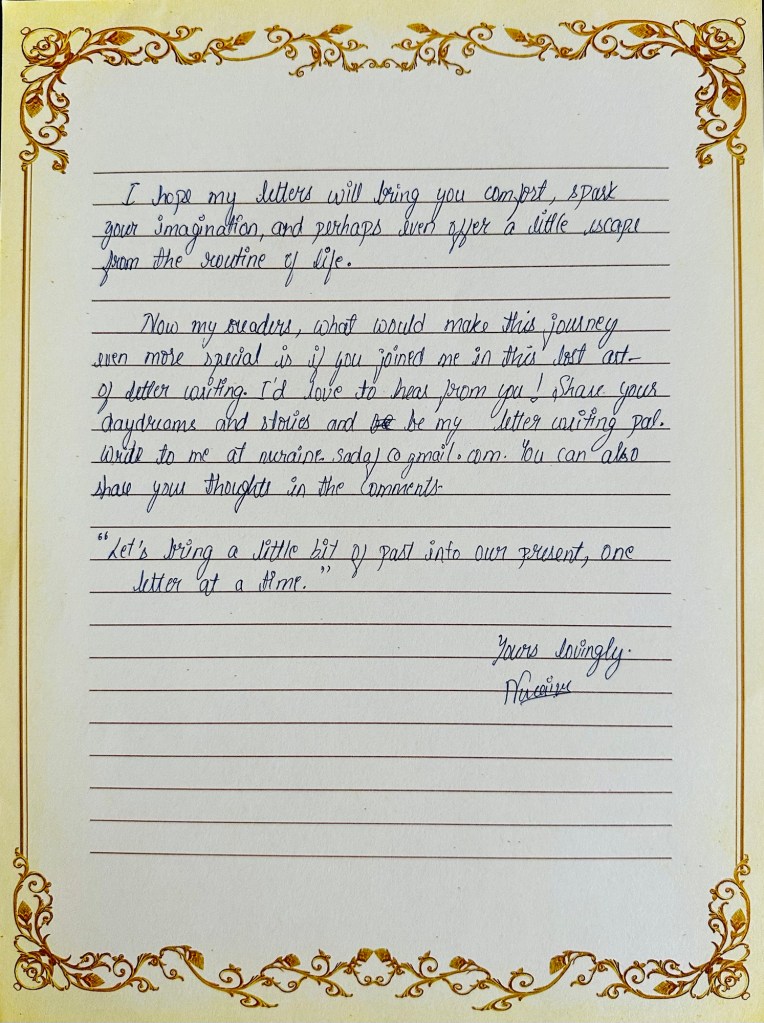 I hope my letters will bring you comfort, spark
your imagination, and perhaps even offer a little escape
from the routine of life.
Now my readers, what would make this journey
even more special is if you joined me in this lost art
of letter writing. I'd love to hear from you! Share your
daydreams and stories and be my letter writing pal.
Write to me at nuraine.sadaf@gmail.com. You can also
share your thoughts in the comments.
"Let's bring a little bit of past into our present, one
letter at a time."
Yours lovingly.